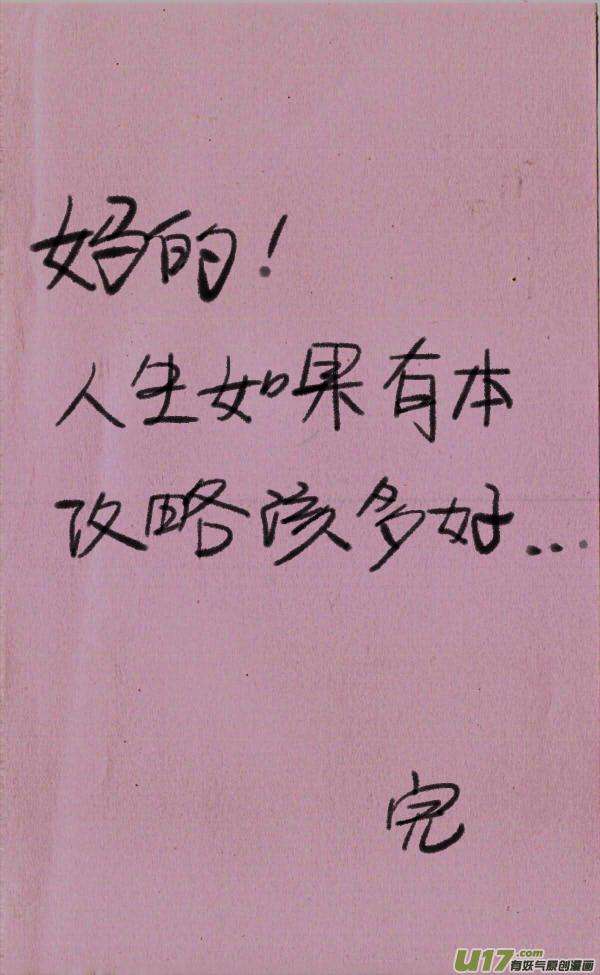 妈的！
人生如果有本
攻略该多好...
完
U17.com
有妖气原创漫画